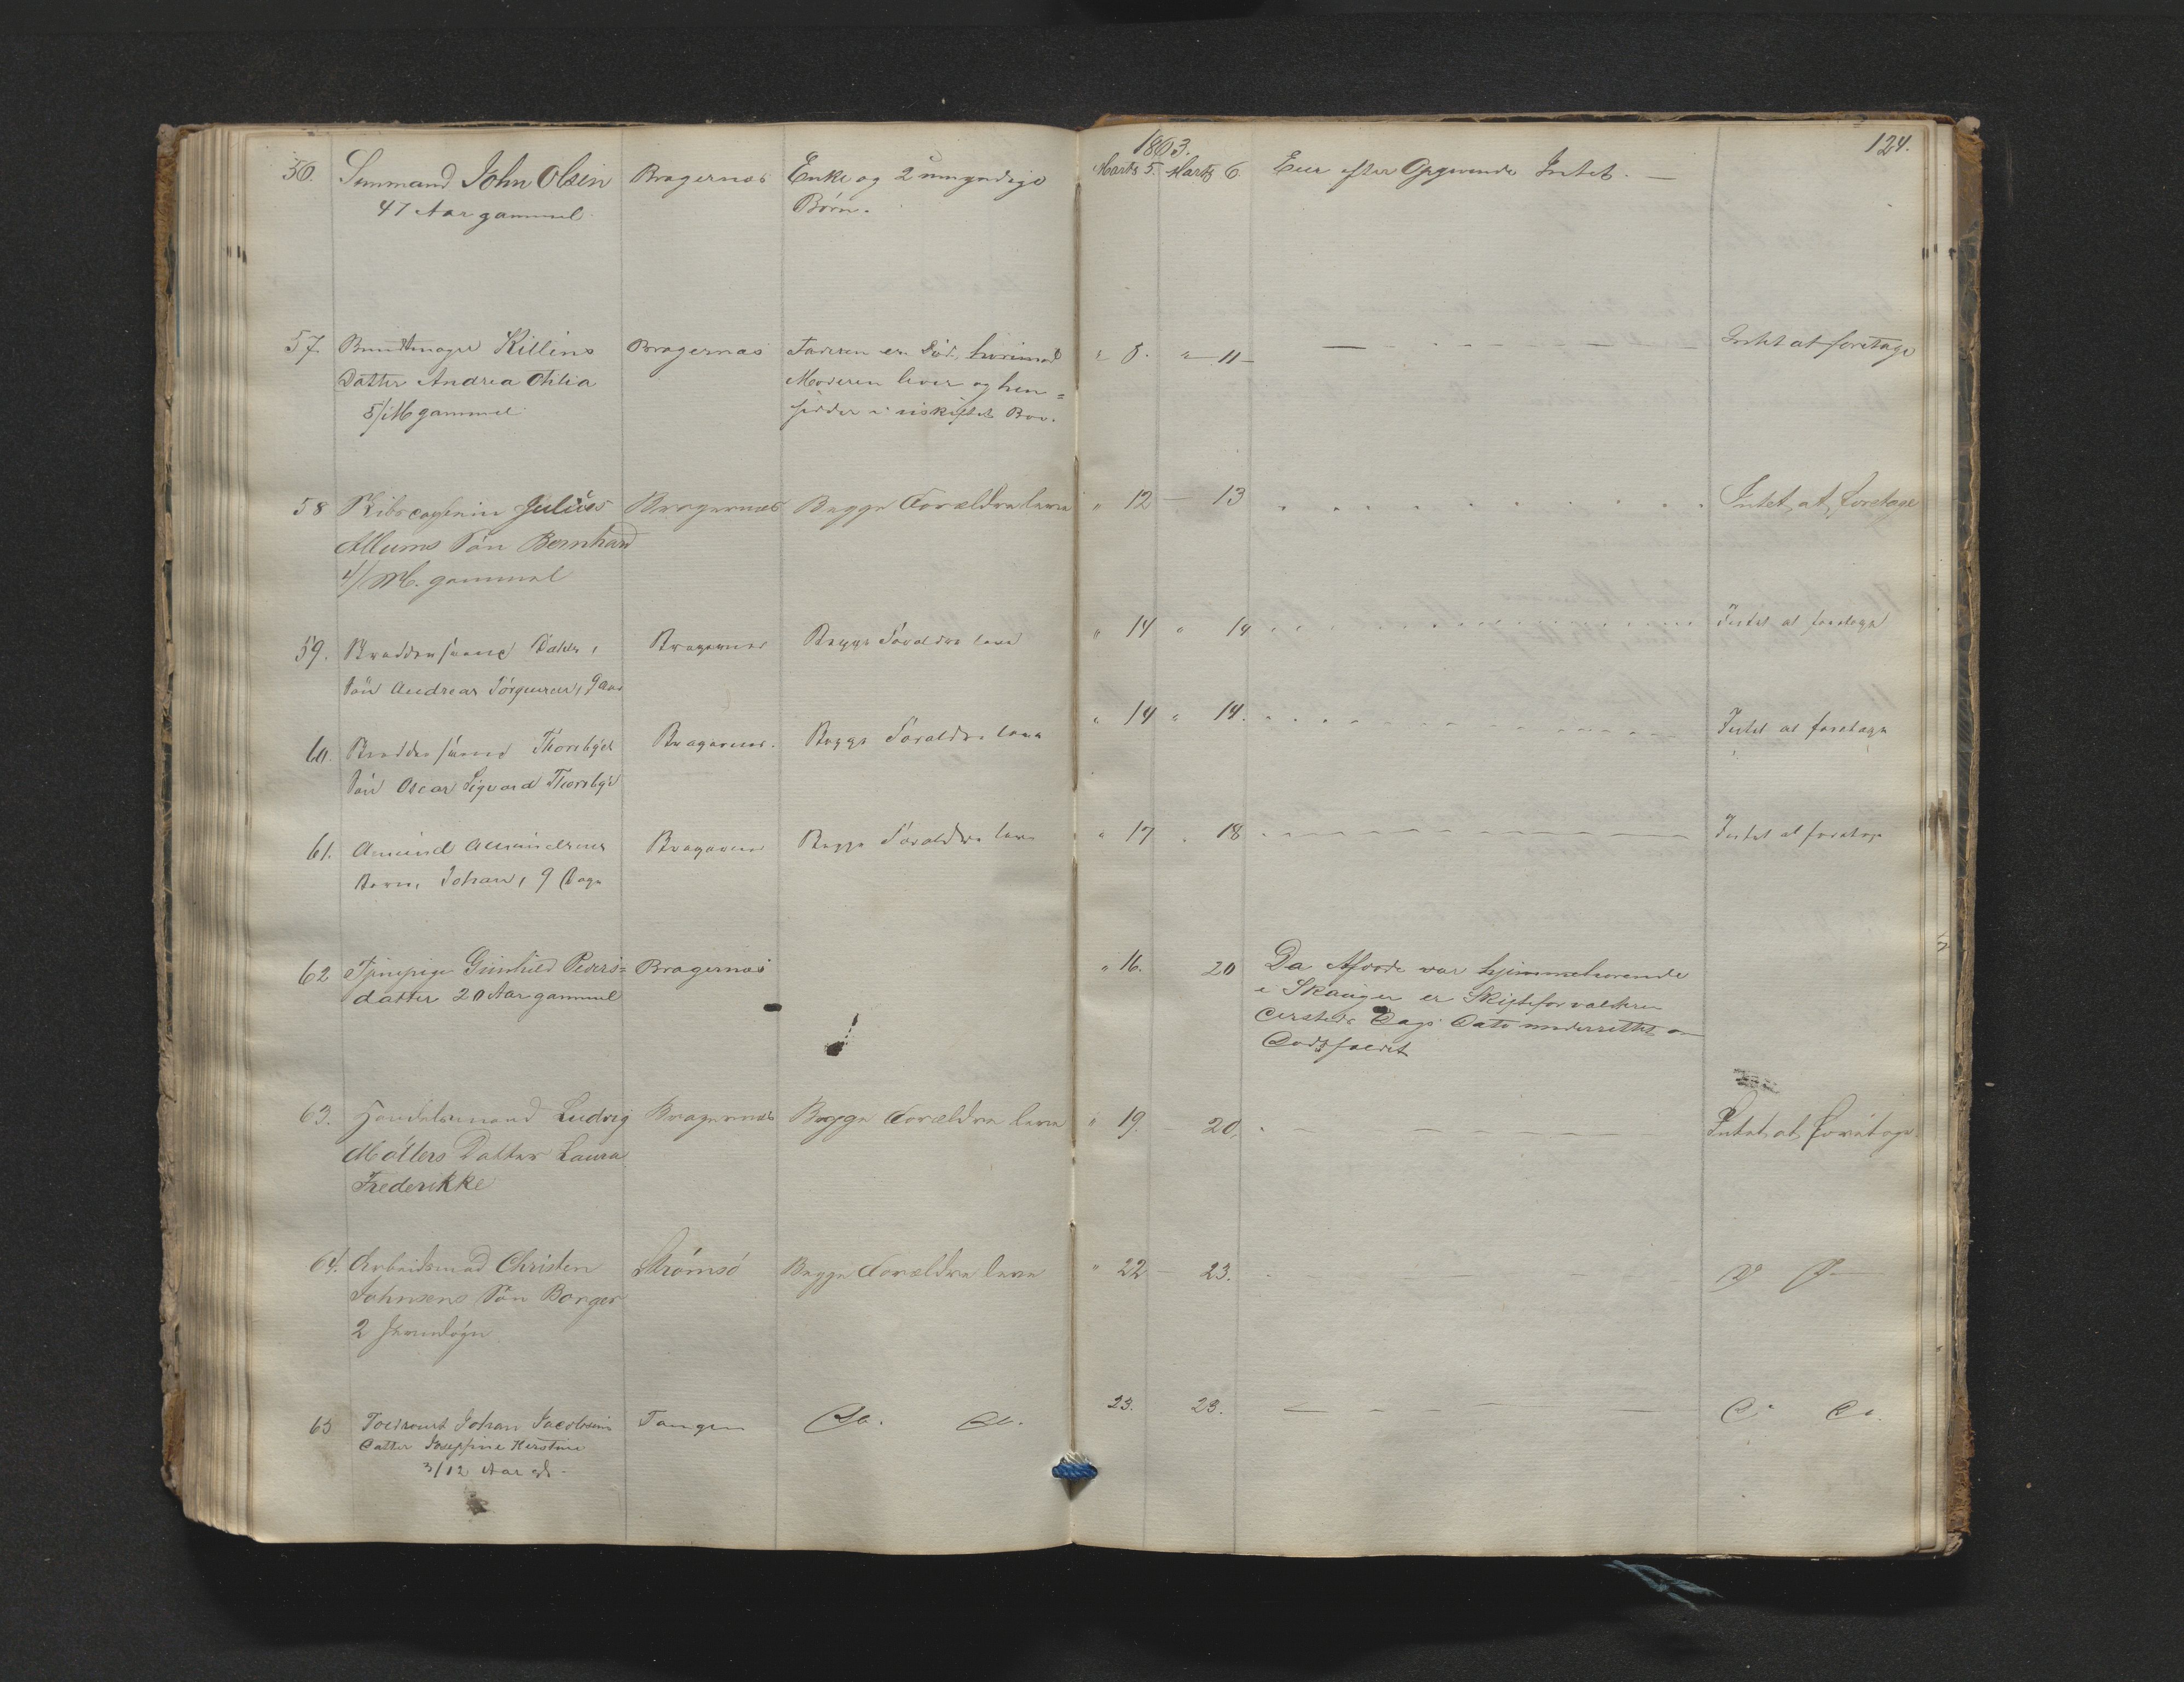 1863.
124.
56. Sømmand John Olsen Bragernæs Enke og 2 umyndige Marts 5. Marts 6. Eier efter Opgivende Intet. —
47 Aar gammel Børn.
57. Buntmager Killins Bragernæs Faderen er død, hvorimod " 8. " 11 — Intet at foretage
Datter Andrea Otilia Moderen lever og hen=
5/M gammel sidder i uskiftet Boe.
58 Skibscaptein Julius Bragernæs Begge Forældre leve " 12 — 13 Intet at foretage
Allums Søn Bernhard
4/M. gammel
59. Dahls, Bragernæs Begge Forældre leve " 14 " 14 Intet at foretage
Søn Andreas Jørgensen, 9 Aar
60. Thorebyes Bragernæs. Begge Forældre leve " 14 " 14. Intet at foretage
Søn Oscar Sigvard Thorebye
61. Amund Amundsens Bragernæs Begge Forældre leve " 17 " 18 Intet at foretage
Barn, Johan, 9 Dage
62 Tjenepige Gunhild Peders= Bragernæs " 16. 20 Da Afdøde var hjemmehørende
datter 20 Aar gammel i Skauger er Skifteforvalteren
dersteds Dags Dato underrettet om
Dødsfaldet
63. Handelsmand Ludvig Bragernæs Begge Forældre leve " 19. 20. Intet at foretage.
Møllers Datter Laura
Frederikke
64. Arbeidsmand Christen Strømsø Begge Forældre leve " 22 — 23. D D
Johnsens Søn Borger
2
65 Johan Jacobsens Tangen Do. Do. 23. 23. Do Do.
Datter Josephine
3/12 Aar gl.